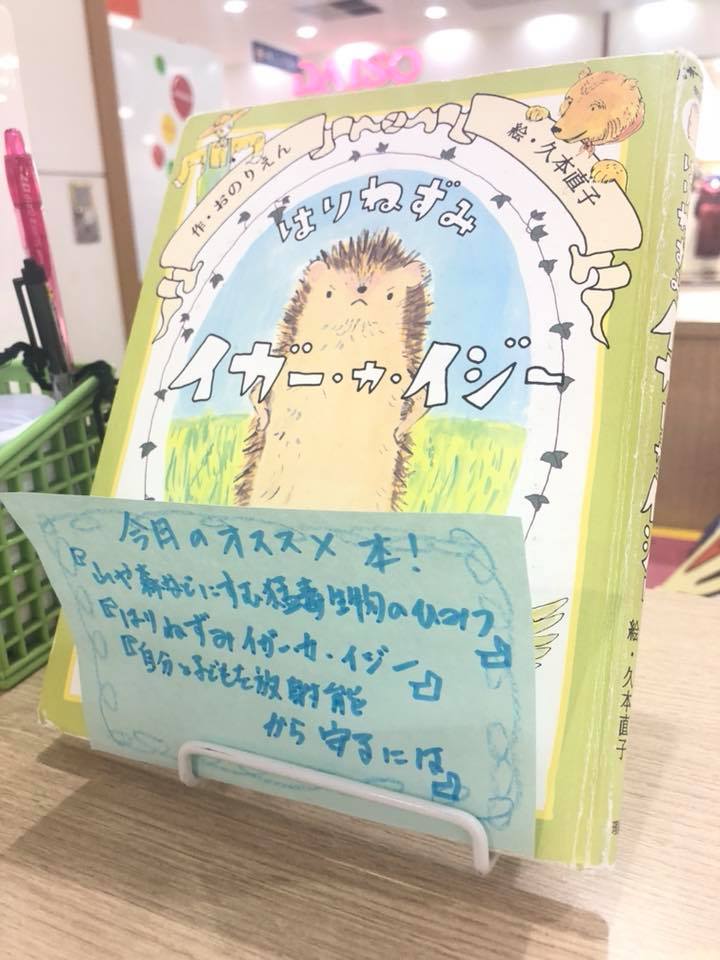 DAISO
作・おのりえん
絵・久本直子
はりねずみ
イガー・カ・イジー
今月のオススメ本!
『山や森などにすむ猛毒生物のひみつ』
『はりねずみイガー・カ・イジー』
『自分と子どもを放射能
から守るには』
絵・久本直子